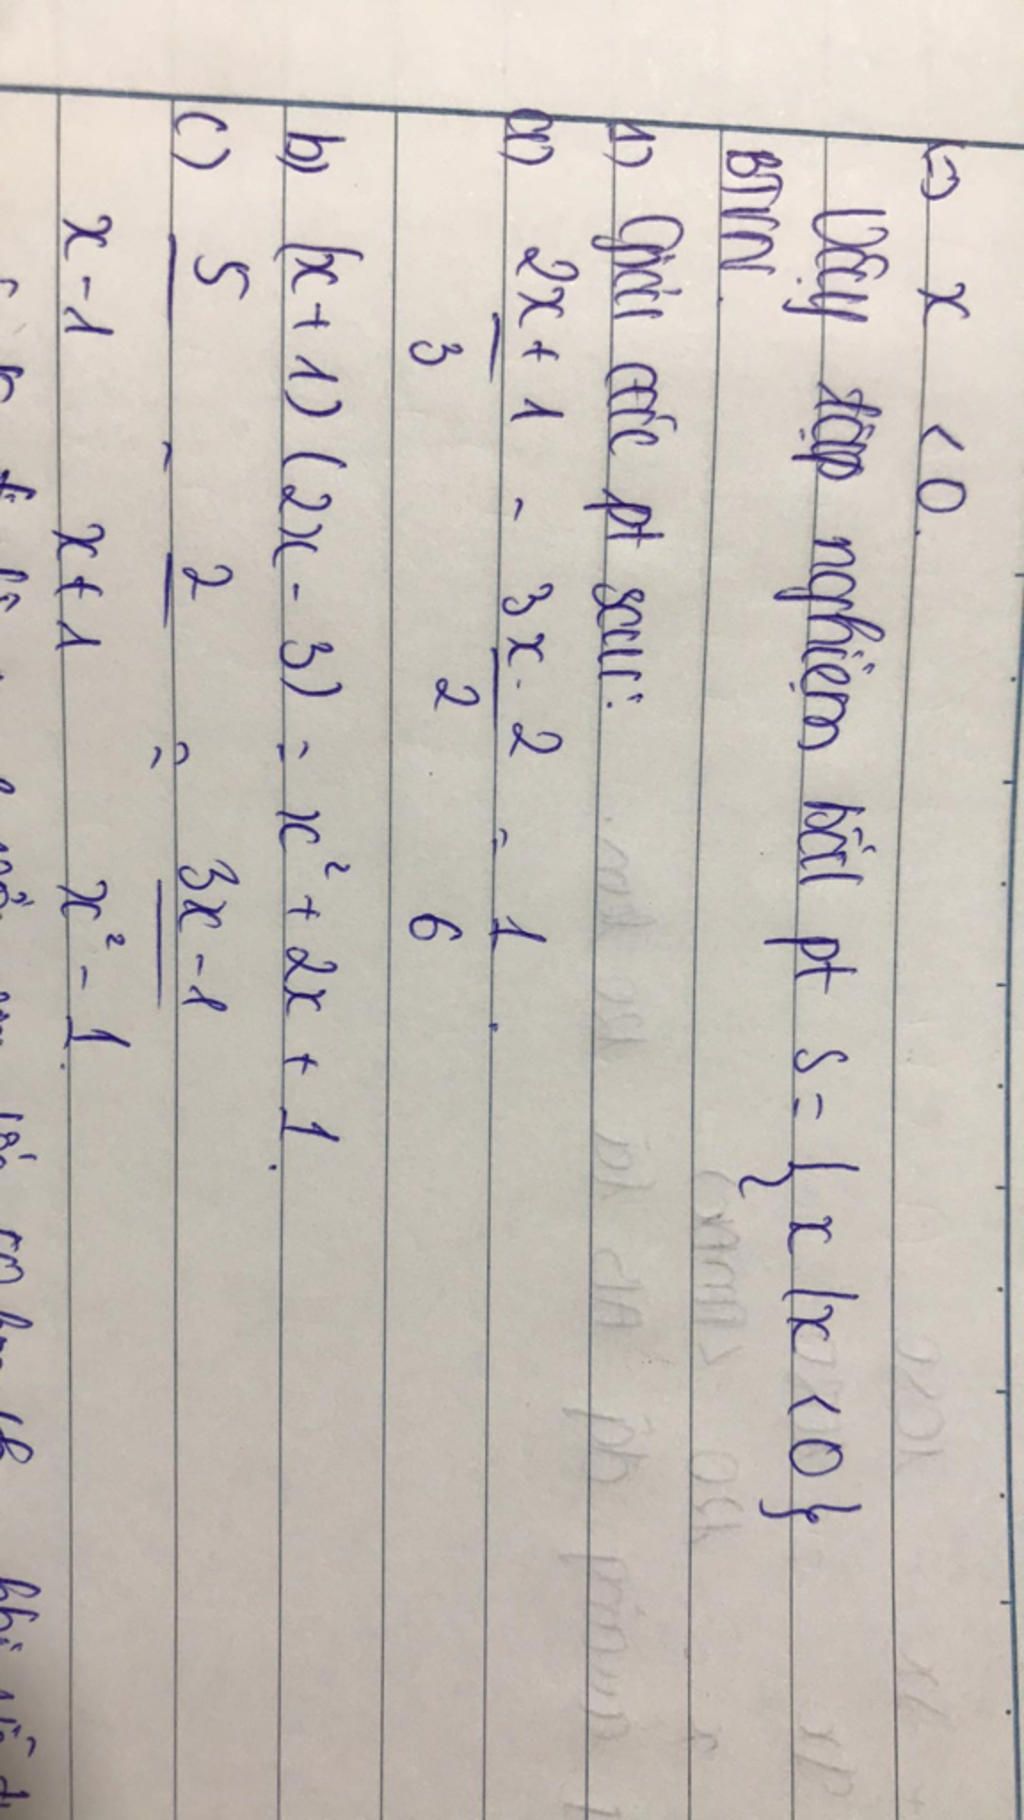 (=) x < 0.
Vậy tập nghiệm bất pt S = { x / x < 0 }
BTVN
1) Giải các pt sau:
a) 2x + 1 - 3x - 2 = 1
3 2 6
b) (x + 1) (2x - 3) = x² + 2x + 1
c) 5 - 2 = 3x - 1
x - 1 x + 1 x² - 1